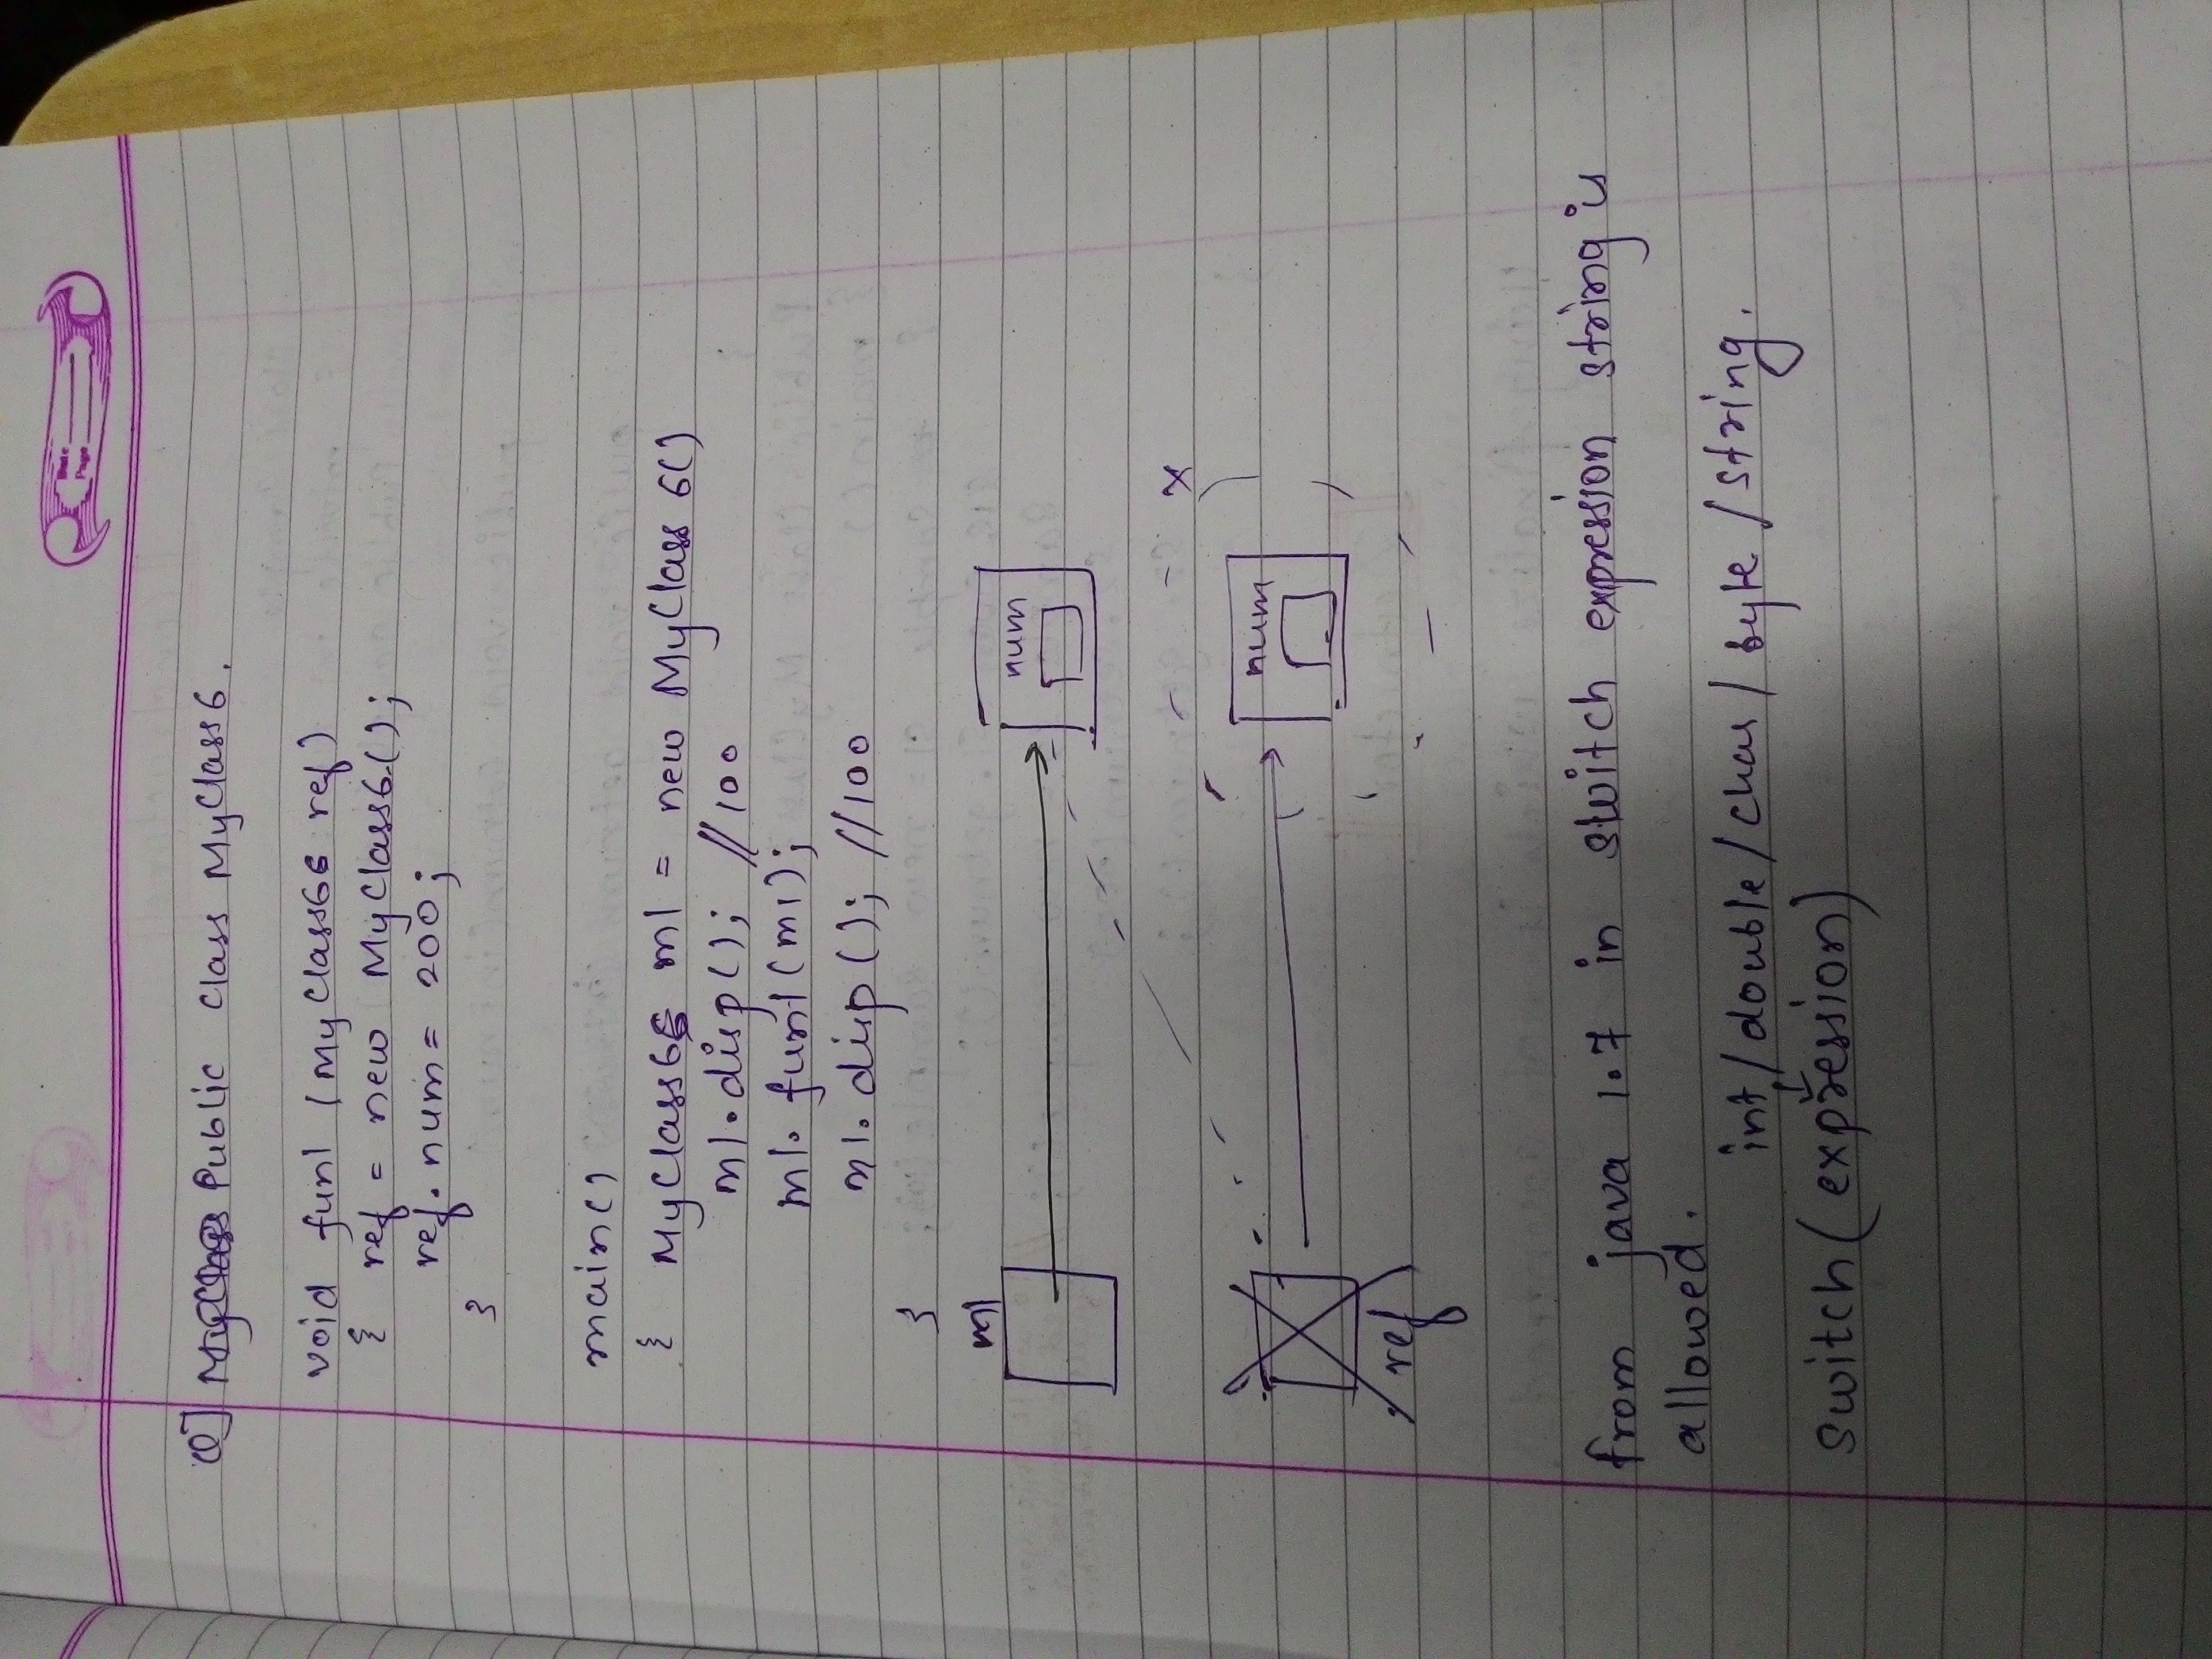 Date
Page
Q] Public class MyClass6.
void fun1 (MyClass66 ref)
{ ref = new MyClass6();
ref.num = 200;
}
main()
{ MyClass66 m1 = new MyClass 6()
m1.disp(); //100
m1.fun1(m1);
m1.disp(); //100
}
m1
num
x
num
ref
from java 1.7 in switch expression string is
allowed.
int/double/char/byte/string.
switch(expression)